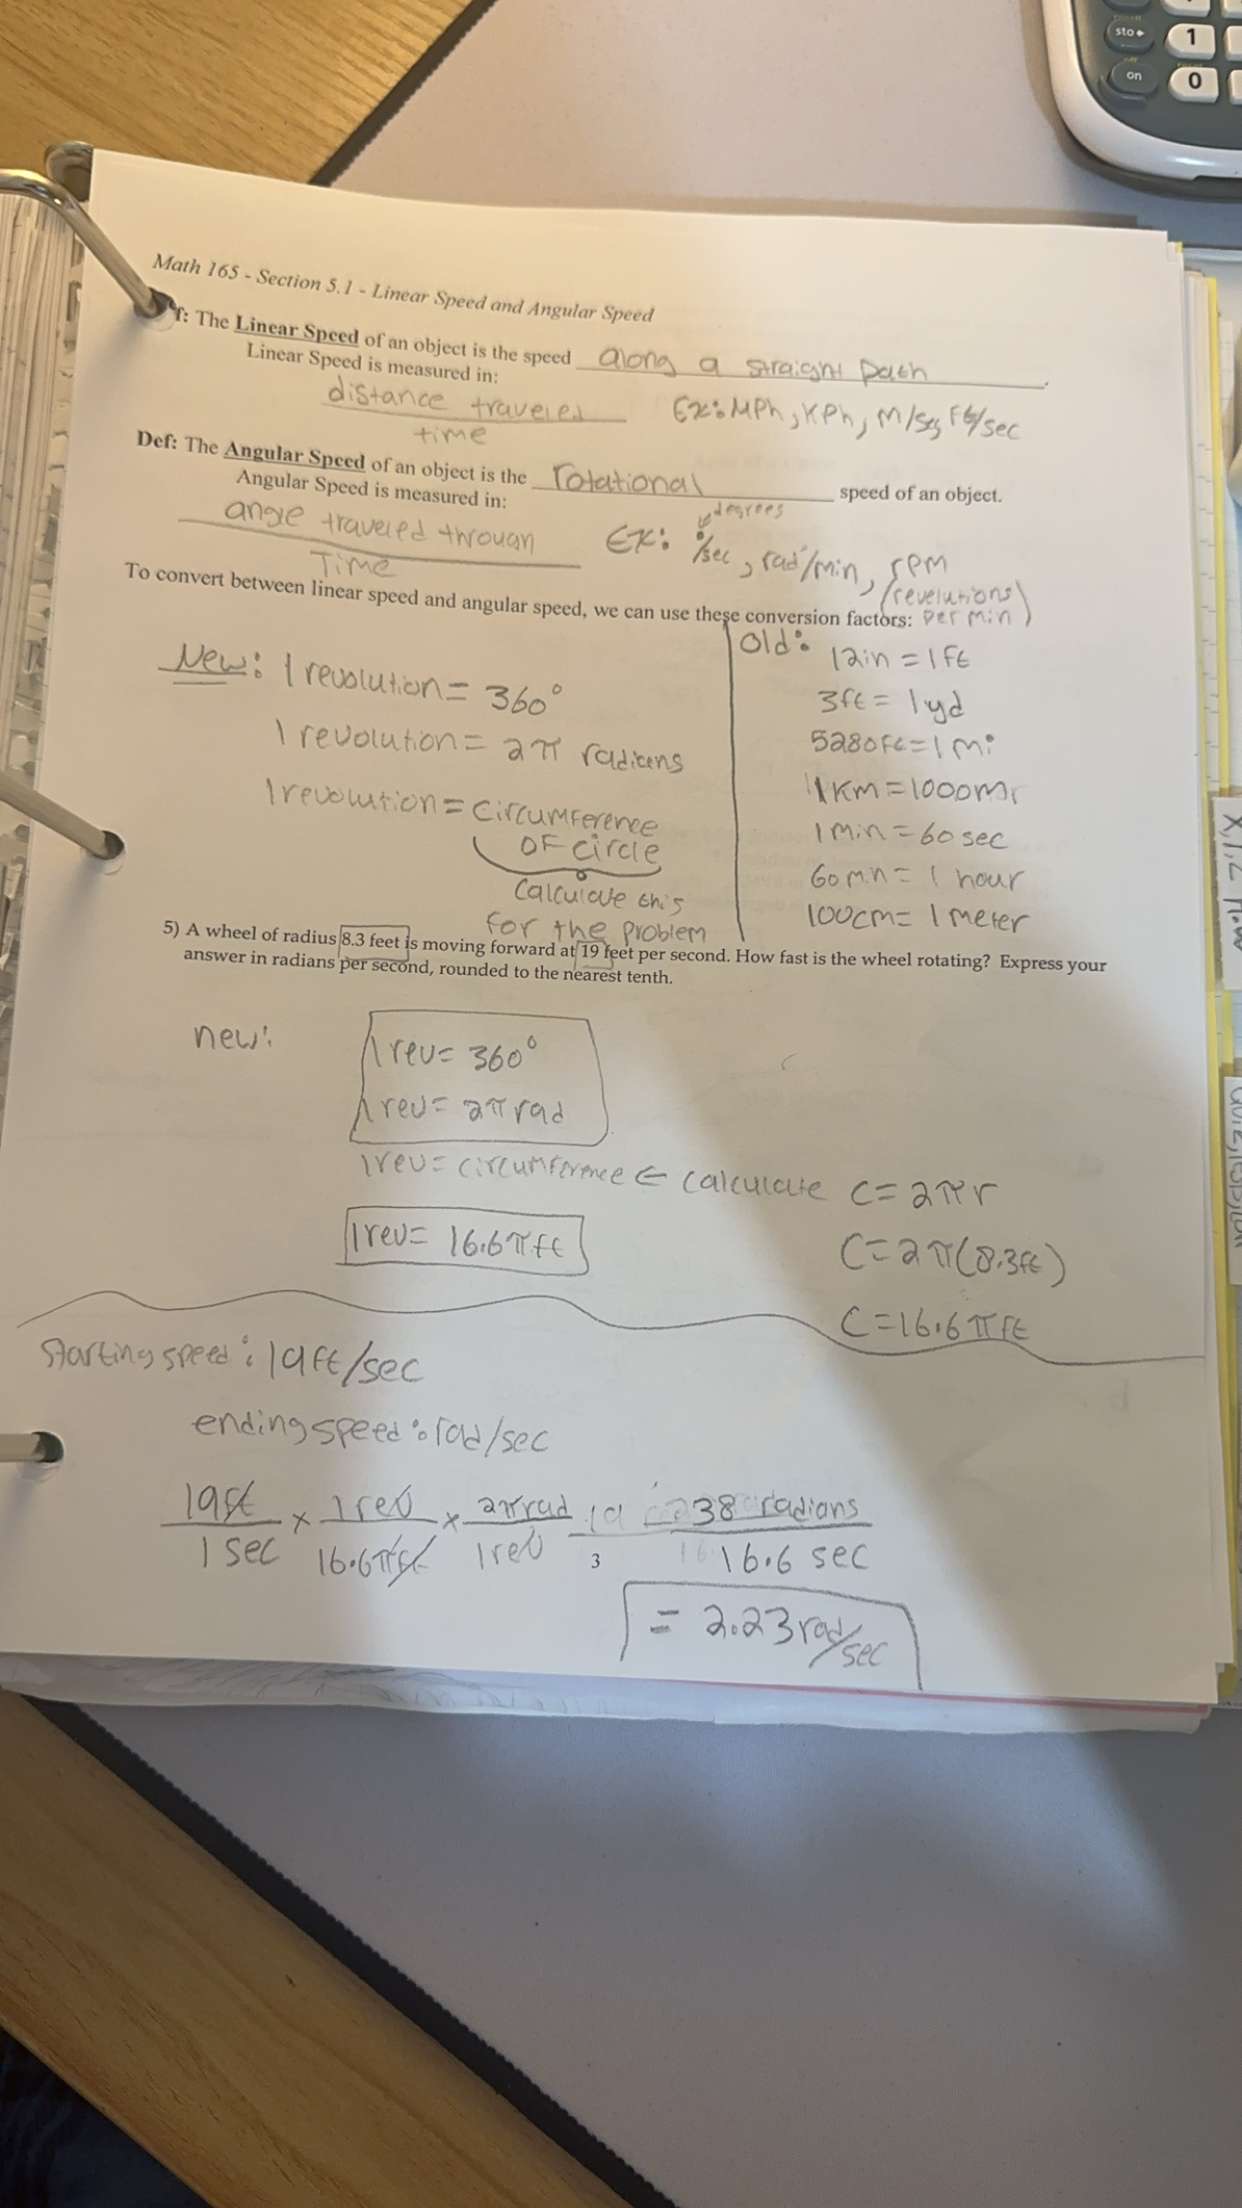 sto→ 1
on 0
Math 165 - Section 5.1 - Linear Speed and Angular Speed
f: The Linear Speed of an object is the speed along a straight path.
Linear Speed is measured in:
distance traveled
time
Ex: MPh, KPh, M/sec, Ft/sec
Def: The Angular Speed of an object is the rotational speed of an object.
Angular Speed is measured in:
degrees
angle traveled through
Time
Ex: °/sec, rad/min, rpm
(revelutions
per min)
To convert between linear speed and angular speed, we can use these conversion factors:
New: 1 revolution = 360°
1 revolution = 2π radians
1 revolution = circumference
OF circle
Calculate this
for the problem
Old: 12in = 1ft
3ft = 1yd
5280ft = 1 mi
1KM = 1000m
1 min = 60 sec
60 min = 1 hour
100cm = 1 meter
5) A wheel of radius 8.3 feet is moving forward at 19 feet per second. How fast is the wheel rotating? Express your
answer in radians per second, rounded to the nearest tenth.
new:
1 rev = 360°
1 rev = 2π rad
1 rev = circumference ← calculate C = 2πr
1 rev = 16.6π ft
C = 2π(8.3ft)
C = 16.6π ft
Starting speed: 19ft/sec
ending speed: rad/sec
19ft × 1 rev × 2π rad 38 radians
1 sec 16.6π ft 1 rev 16.6 sec
3
= 2.23 rad/sec